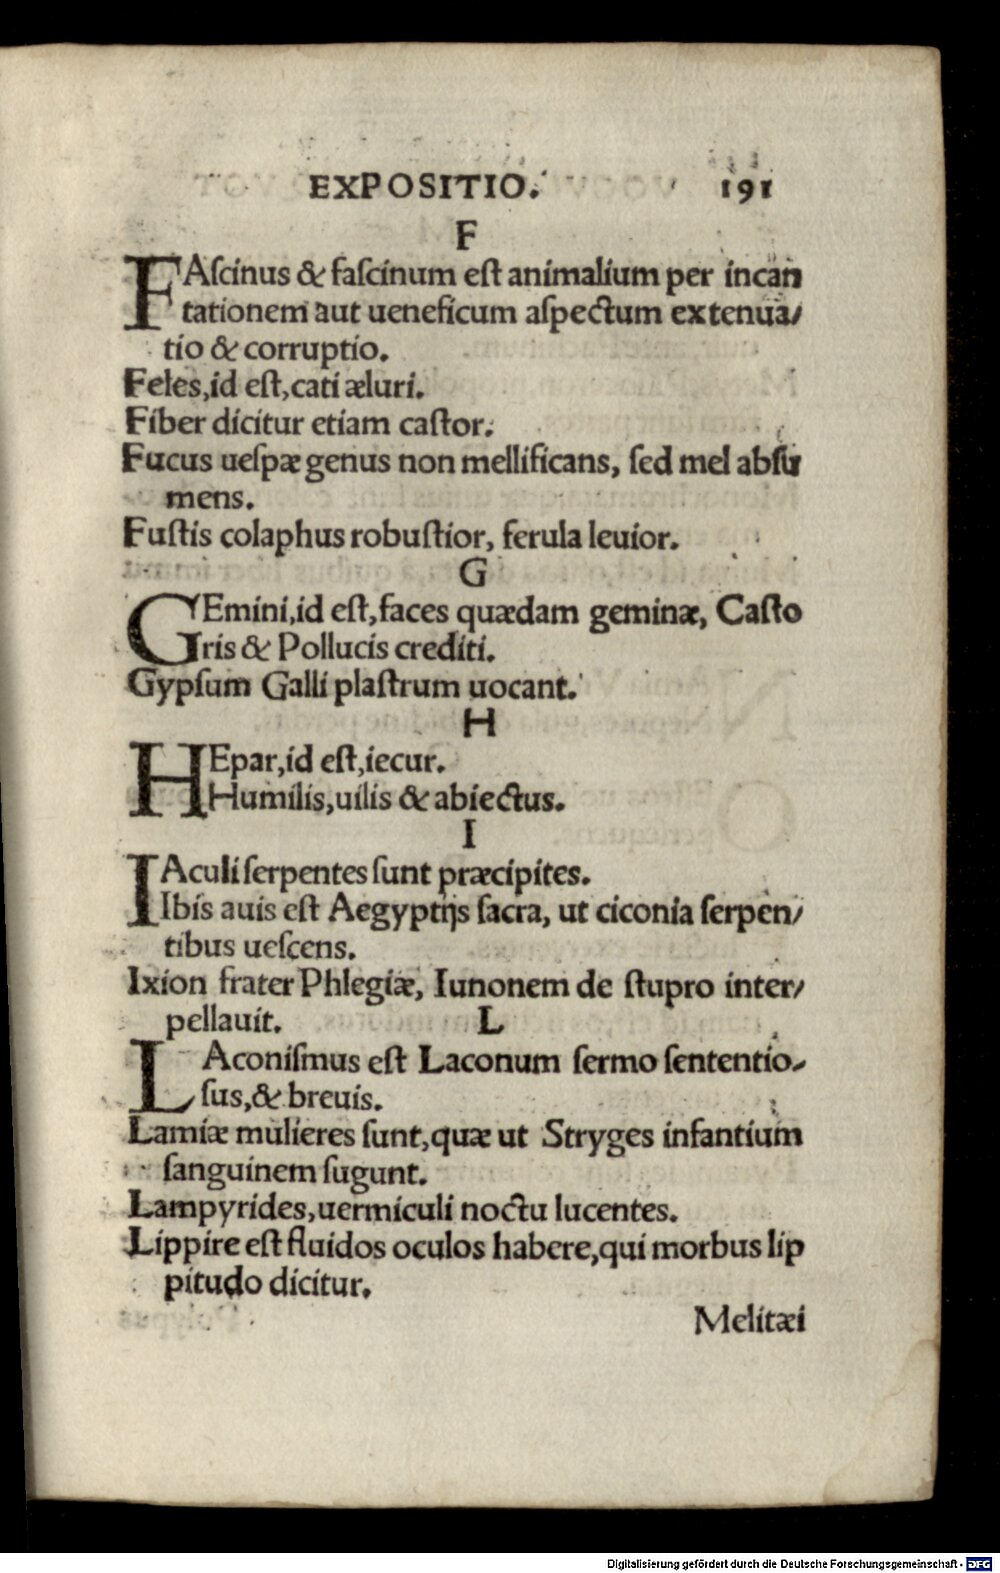 EXPOSITIO. 191
F
FAſcinus & faſcinum eſt animalium per incan
tationem aut ueneficum aſpectum extenua/
tio & corruptio.
Feles,id eſt,cati æluri.
Fiber dicitur etiam caſtor.
Fucus ueſpæ genus non mellificans, ſed mel abſu
mens.
Fuſtis colaphus robuſtior, ferula leuior.
G
GEmini,id eſt,faces quædam geminæ, Caſto
ris & Pollucis crediti.
Gypſum Galli plaſtrum uocant.
H
HEpar,id eſt,iecur.
Humilis,uilis & abiectus.
I
IAculi ſerpentes ſunt præcipites.
Ibis auis eſt Aegyptijs ſacra, ut ciconia ſerpen/
tibus ueſcens.
Ixion frater Phlegiæ, Iunonem de ſtupro inter/
pellauit. L
LAconiſmus eſt Laconum ſermo ſententio/
ſus,& breuis.
Lamiæ mulieres ſunt,quæ ut Stryges infantium
ſanguinem ſugunt.
Lampyrides,uermiculi noctu lucentes.
Lippire eſt fluidos oculos habere,qui morbus lip
pitudo dicitur.
Melitæi
Digitalisierung gefördert durch die Deutsche Forschungsgemeinschaft - DFG